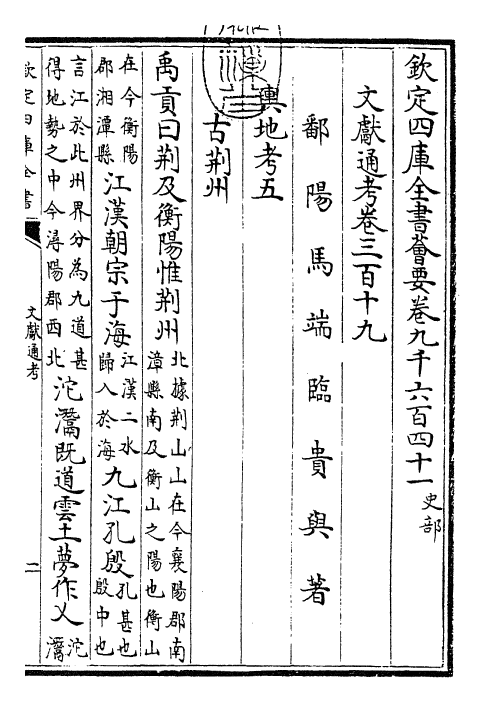 欽定四庫全書薈要卷九千六百四十一史部
文獻通考卷三百十九
鄱陽馬端臨貴與著
輿地考五
古荆州
禹貢曰荆及衡陽惟荆州北據荆山山在今襄陽郡南漳縣南及衡山之陽也衡山
在今衡陽郡湘潭縣江漢朝宗于海江漢二水歸入於海九江孔殷孔甚也殷中也
言江於此州界分為九道甚得地勢之中今潯陽郡西北沱灊既道雲土夢作乂沱灊
欽定四庫全書
文獻通考
二